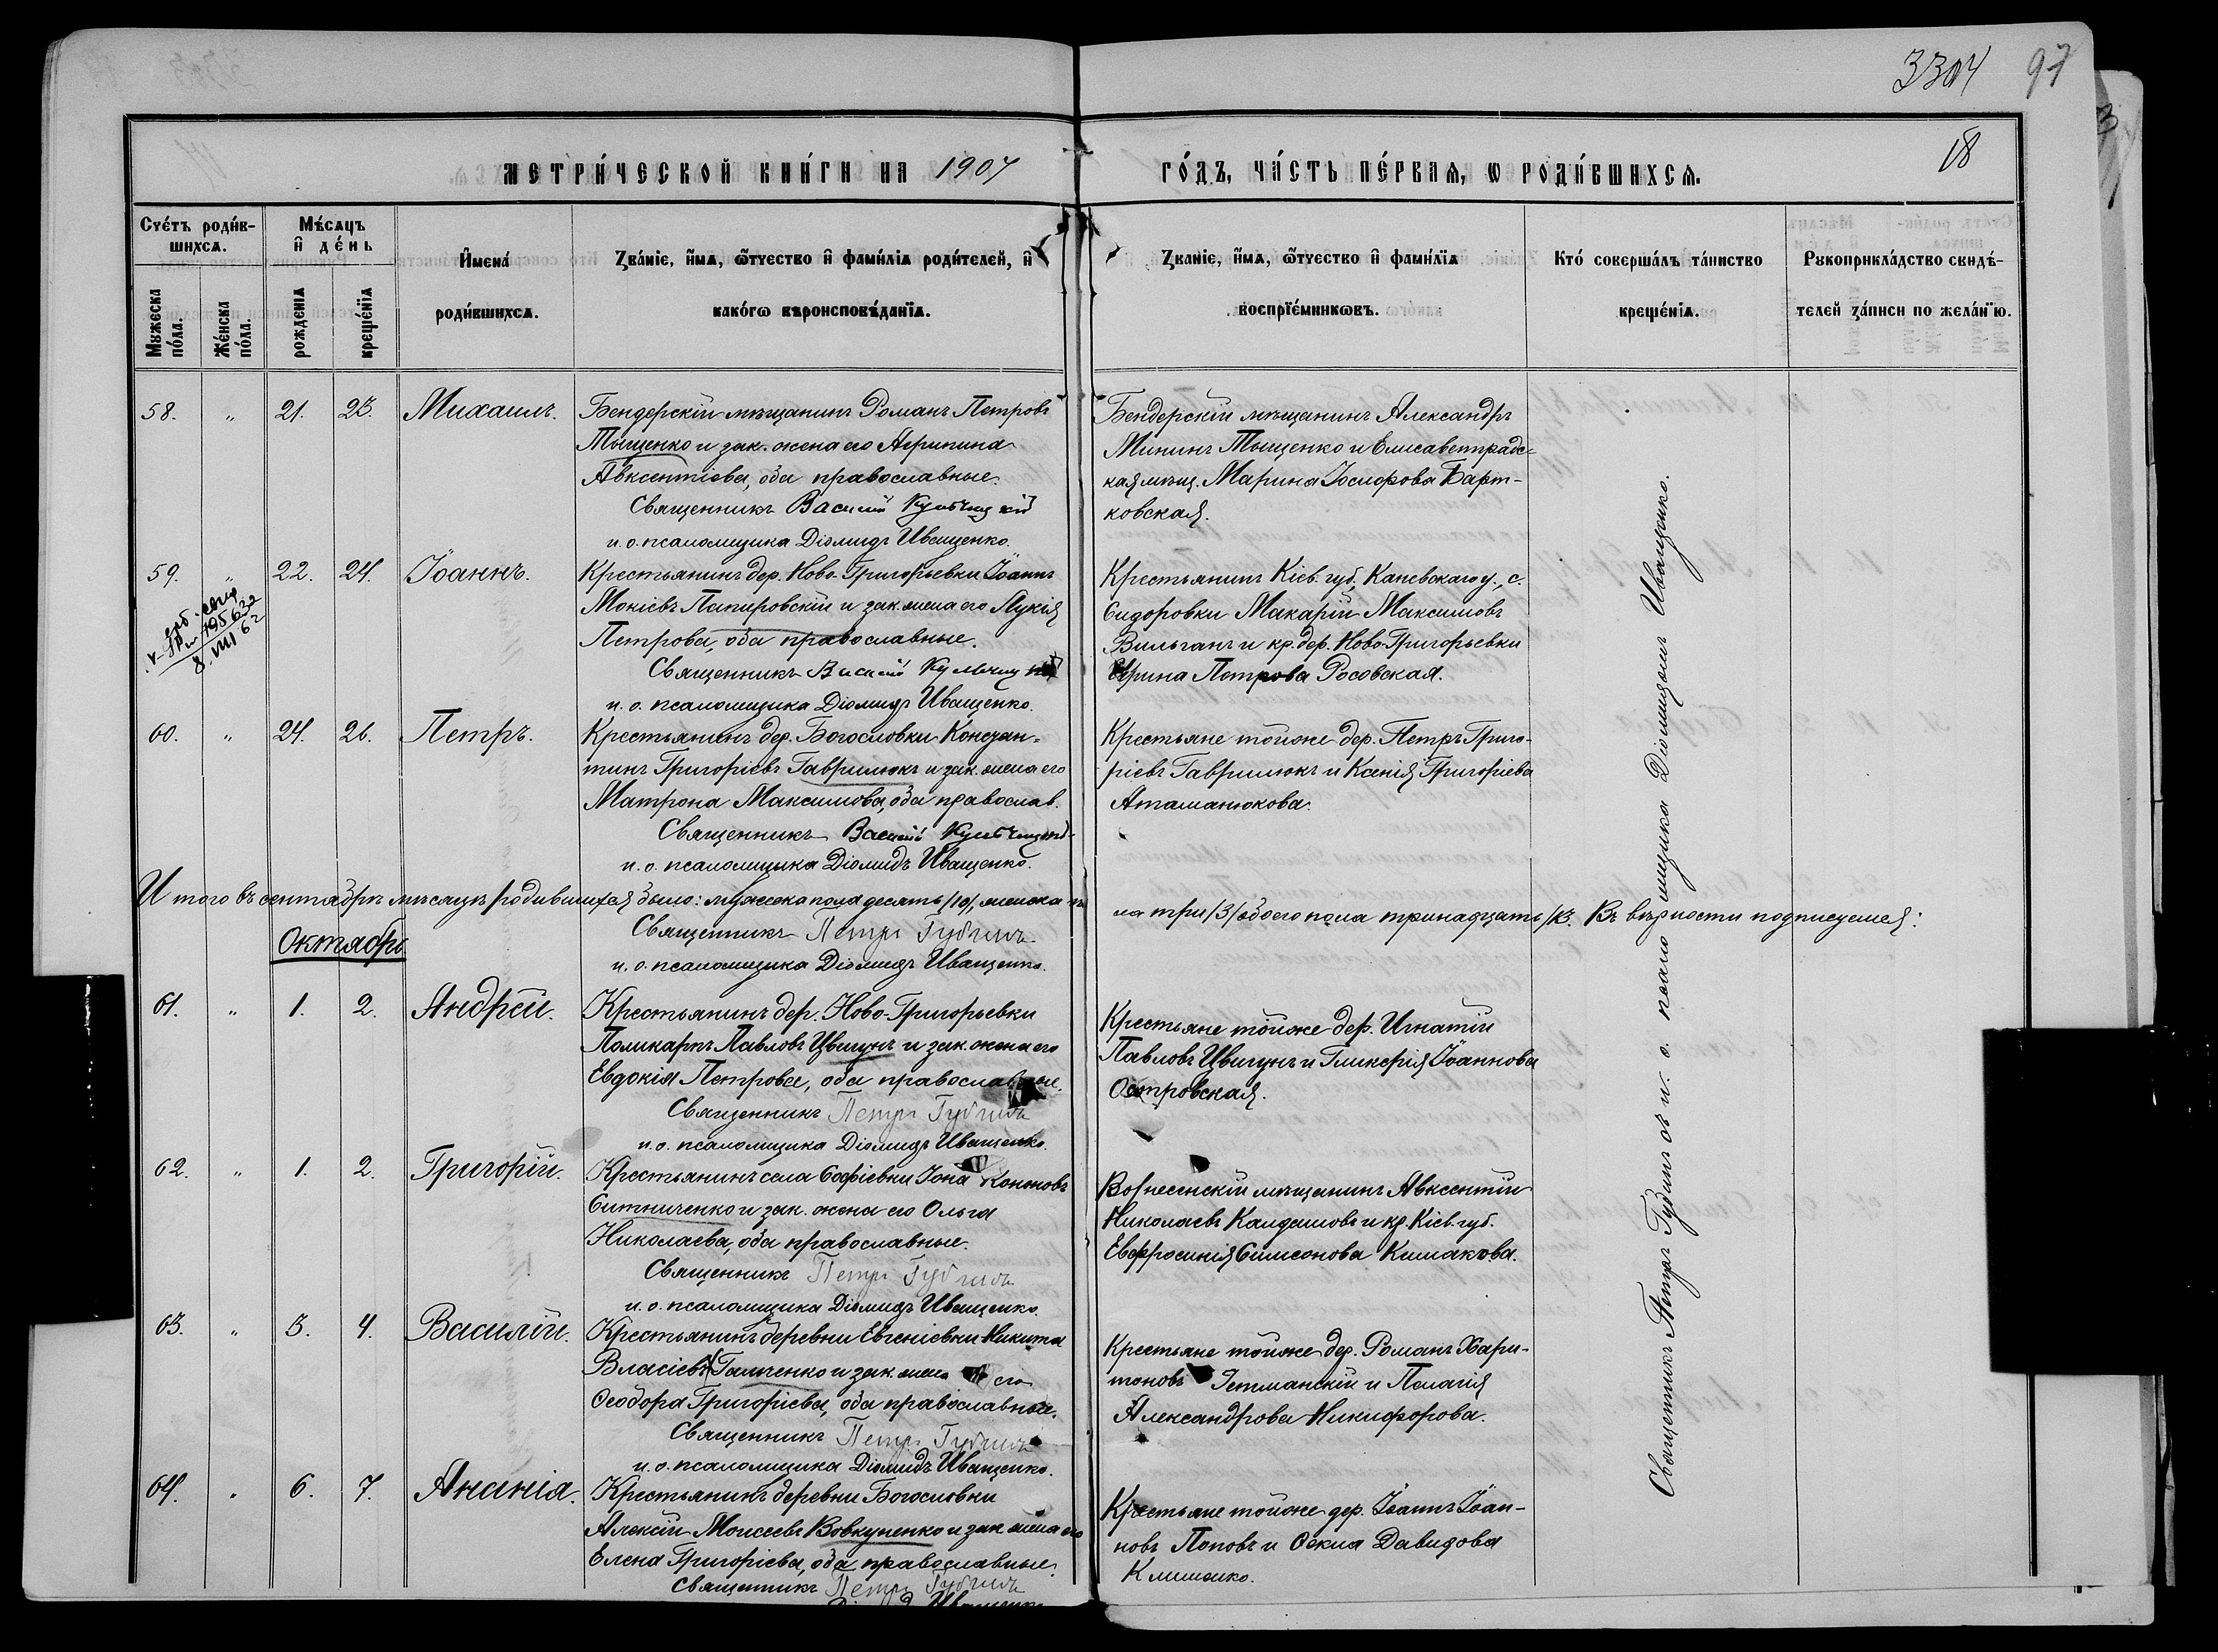 3304 97
18
МЕТРИ́ЧЕСКОЙ КНИ́ГИ НА 1907 ГО́ДЪ, ЧА́СТЬ ПЕ́РВАЯ, Ѡ РОДИ́ВШИХСЯ.
Счéтъ роди́в-
шихся.
Мѣ́сяцъ
и де́нь
Мужеска
по́ла.
Же́нска
по́ла.
рожденїя
креще́нїя
Имена́
роди́вшихся.
Зва́нїе, и́мя, ѻ҆́тчество и фами́лїя роди́телей, и
како́гѡ вѣроисповѣ́данїя.
Зва́нїе, и́мя, ѻ҆́тчество и фами́лїя
воспрїе́мникѡвъ.
Кто́ соверша́лъ та́инство
креще́нїя.
Рꙋкоприкла́дство свидѣ́-
телей за́писи по жела́нїю.
58. " 21. 23. Михаилъ.
Бендерскій мѣщанинъ Романъ Петровъ
Тыщенко и зак. жена его Агрипина
Авксентіева, оба православные.
Священникъ Василій Кульчицкій
и. о. псаломщика Діомидъ Иващенко.
Бендерскій мѣщанинъ Александръ
Мининъ Тыщенко и Елисаветградс-
кая мѣщ. Марина Іосифова Барт-
ковская.
59. " 22. 24. Іоаннъ.
8.VIII 62
Крестьянинъ дер. Ново-Григорьевки Іоаннъ
Мокіевъ Папировскій и зак. жена его Лукія
Петрова, оба православные.
Священникъ Василій Кульчицкій
и. о. псаломщика Діомидъ Иващенко.
Крестьянинъ Кіев. губ. Каневскаго у., с.
Сидоровки Макарій Максимовъ
Вильганъ и кр. дер. Ново-Григорьевки
Ирина Петрова Росовская.
60. " 24. 26. Петръ.
Крестьянинъ дер. Богословки Констан-
тинъ Григоріевъ Гаврилюкъ и зак. жена его
Матрона Максимова, оба православ.
Священникъ Василій Кульчицкій
и. о. псаломщика Діомидъ Иващенко.
Крестьяне тойже дер. Петръ Григо-
ріевъ Гаврилюкъ и Ксенія Григоріева
Атаманюкова.
Итого въ сентябрѣ мѣсяцѣ родившихся было: мужеска пола десять /10/, женска по-
ла три /3/ обоего пола тринадцать /13. Въ вѣрности подписуемся:
Священникъ Петръ Гудимъ
и. о. псаломщика Діомидъ Иващенко.
Октябрь
61. " 1. 2. Андрей.
Крестьянинъ дер. Ново-Григорьевки
Поликарпъ Павловъ Цвигунъ и зак. жена его
Евдокія Петрова, оба православные.
Священникъ Петръ Гудимъ
и. о. псаломщика Діомидъ Иващенко.
Крестьяне тойже дер. Игнатій
Павловъ Цвигунъ и Гликерія Іоаннова
Островская.
62. " 1. 2. Григорій.
Крестьянинъ села Софіевки Іона Кононовъ
Ситниченко и зак. жена его Ольга
Николаева, оба православные.
Священникъ Петръ Гудимъ
и. о. псаломщика Діомидъ Иващенко.
Вознесенскій мѣщанинъ Авксентій
Николаевъ Калдашовъ и кр. Кіев. губ.
Евфросинія Симеонова Кимакова.
63. " 3. 4. Василій.
Крестьянинъ деревни Евгеніевки Никита
Власіевъ Гальченко и зак. жена его
Ѳеодора Григоріева, оба православные.
Священникъ Петръ Гудимъ
и. о. псаломщика Діомидъ Иващенко.
Крестьяне тойже дер. Романъ Хари-
тоновъ Гетманскій и Пелагія
Александрова Никифорова.
64. " 6. 7. Ананія.
Крестьянинъ деревни Богословки
Алексій Моисеевъ Вовкуненко и зак. жена его
Елена Григоріева, оба православные.
Священникъ Петръ Гудимъ
Діомидъ Иващенко
Крестьяне тойже дер. Іоаннъ Іоан-
новъ Поповъ и Ѳекла Давидова
Клименко.
Священникъ Петръ Гудимъ съ и. о. псаломщика Діомидомъ Иващенко.